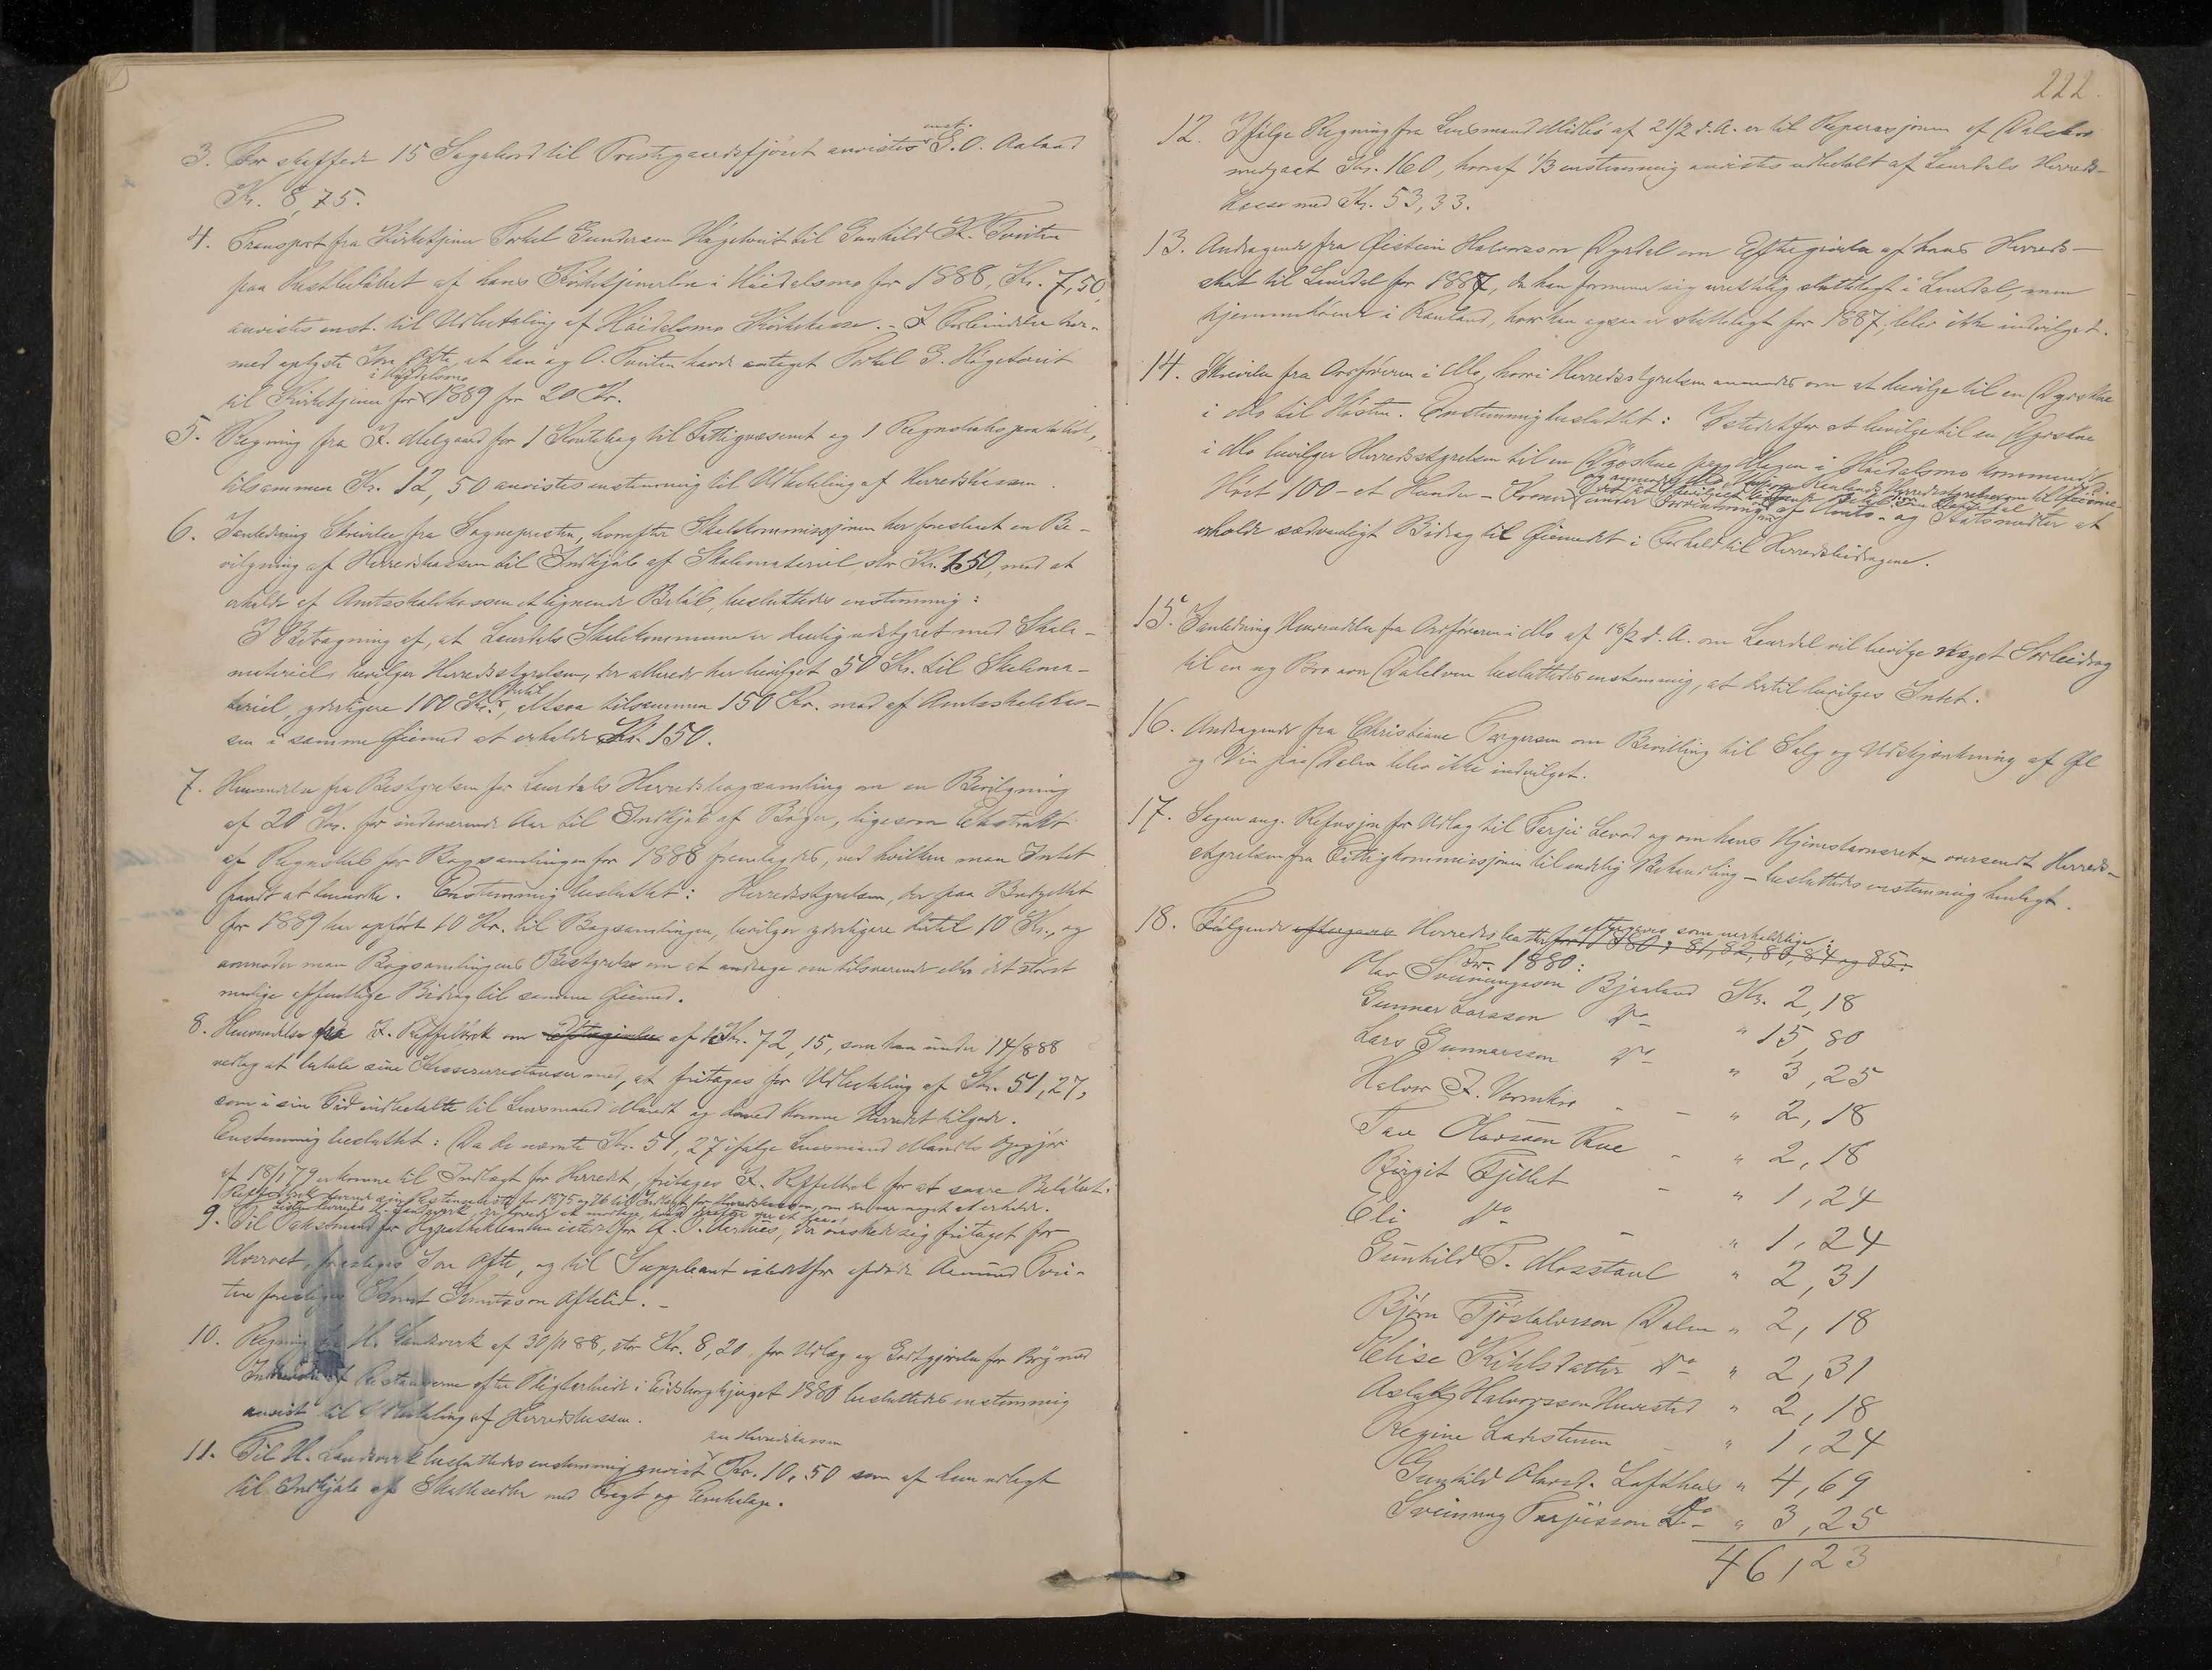 3. For skaffede 15 Sagabord til Prestegaardsfjöset anvistes enst. G. O. Aaland
Kr. 8,75.
4. Transport fra Kirketjener Torkel Gundersen Högetveit til Gunhild K. Tveiten
paa Restbelöbet af hans Kirketjenerlön i Höidalsmo for 1888, Kr. 7,50,
anvistes enst. til Udbetaling af Höidalsmo Kirkekasse. - I Forbindelse her-
med oplyste Jon Ofte, at han og O. Tveiten havde antaget Torkel G. Högetveit
til Kirketjener i Höidalsmo for 1889 for 20 Kr.
5. Regning fra J. Melgaard for 1 Kontobog til Fattigvæsenet og 1 Regnskabsprotokol,
tilsammen Kr. 12,50 anvistes enstemmig til Udbetaling af Herredskassen.
6. I anledning Skrivelse fra Sognepresten, hvorefter Skolekommissjonen har foreslaaet en Be-
vilgning af Herredskassen til Indkjöb af Skolemateriel, stor Kr. 150, mod at
erholde af Amtsskolekassen et lignende Belöb, besluttedes enstemmig:
I Betragtning af, at Laurdals Skolekommune er daarlig udstyret med Skole-
materiel, bevilger Herredsstyrelsen, der allerede har bevilget 50 Kr. til Skolema-
teriel, yderligere 100 Kr. dertil, Altsaa tilsammen 150 Kr. mod af Amtsskolekas-
sen i samme Öiemed at erholde Kr. 150.
7. Henvendelse fra Bestyrelsen for Laurdals Herredsbogsamling om en Bevilgning
af 20 Kr. for indeværende Aar til Indkjöb af Böger, ligesom Ekstrakt
af Regnskab for Bogsamlingen for 1888 fremlagdes, ved hvilken man Intet
fandt at bemærke. Enstemmig besluttet: Herredsstyrelsen, der paa Budgettet
for 1889 har opfört 10 Kr. til Bogsamlingen, bevilger yderligere dertil 10 Kr., og
anmoder man Bogsamlingens Bestyrelse om at andrage om tilsvarende eller det störst
mulige offentlige Bidrag til samme Öiemed.
8. Henvendelse fra J. Rÿffelbæk om Eftergivelse af Kr. 72,15, som han under 14/8 88
vedtog at betale sine Kassererrestancer med, at fritages for Udbetaling af Kr. 51,27,
som i sin Tid indbetalte til Lensmand Mandt og derved komme Herredet tilgode.
Enstemmig besluttet: Da de nævnte Kr. 51,27 ifölge Lensmand Mandts Opgjör
af 18/1 79 er komne til Indtægt for Herredet, fritages J. Rÿffelbæk for at svare Belöbet.
9. Til Takstmand for Hypothekbanken istedetfor A. O. Aarhus, der önsker sig fritaget for
Hvervet, foreslages Jon Ofte, og til Suppleant istedetfor afdöde Aamund Tvei-
ten foreslages Knut Knutsson Aftelid. -
10. Regning fra H. Landsverk af 30/11 88, stor Kr. 8,20, for Udlæg og Godtgjörelse for Bry med
Restancerne efter Pligtarbeide i Eidsborgkjeget 1880 besluttedes enstemmig
anvist til Udbetaling af Herredskassen.
11. Til H. Landsverk besluttedes enstemmig anvist av Herredskassen Kr. 10,50 som af ham udlagt
til Indkjöb af Skattesedler med Fragt og Emballage.
222.
12. Ifölge Regning fra Lensmand Midbö af 21/2 d. A. er til Reparasjonen af Dalsbro
medgaaet Kr. 160, hvoraf 1/3 enstemmig anvistes udbetalt af Laurdals Herreds-
kasse med Kr. 53,33.
13. Andragende fra Öistein Halvorsson Dyrdal om Eftergivelse af hans Herreds-
skat til Laurdal for 1887, da han formener sig urettelig skattelagt i Laurdal, men
hjemmehörende i Rauland, hvor han ogsaa er skattelagt for 1887, blev ikke indvilget.
14. Skrivelse fra Ordföreren i Mo, hvori Herredsstyrelsen anmodes om at bevilge til en Dyrskue
i Mo til Hösten. Enstemmig besluttet: Istedetfor at bevilge til en Dyrskue
i Mo bevilger Herredsstyrelsen til en Dyrskue paa Mogen i Höidalsmo kommende
Höst 100 - et Hundre - Kroner under Forudsætning af Amts- og Statsmidler at
erholde sædvanligt Bidrag til Öiemedet i Forhold til Herredsbidragene.
15. I anledning Henvendelse fra Ordföreren i Mo af 18/2 d. A. om Laurdal vil bevilge noget Forbidrag
til en ny Bro over Dalelven besluttedes enstemmig, at dertil bevilges Intet.
16. Andragende fra Christiane Torgersen om Bevilling til Salg og Udskjænkning af Öl
og Vin paa Dalen blev ikke indvilget.
17. Sagen ang. Refusjon for Udlæg til Tarjei Levod og om hans Hjemstavnsret - oversendt Herreds-
styrelsen fra Fattigkommissjonen til endelig Behandling - besluttedes enstemmig henlagt.
18. Fölgende eftergaaede Herredsskatter eftergives som uerholdelige: for 1880, 81, 82, 83, 84 og 85:
For 1880:
Olav Sveinungsson Bjaaland Kr. 2,18
Gunnar Larsson Do - " 15,80
Lars Gunnarsson Do - " 3,25
Halvor J. - - " 2,18
Tov Olavsson Rue - " 2,18
Birgit Fjellet - " 1,24
Eli Do - - " 1,24
Gunhild T. Mosstaul " 2,31
Björn Tjöstolvsson Dalen " 2,18
Elise Kihlsdatter Do - " 2,31
Aslak Halvorsson Huvestad " 2,18
Regine Ladestuen - " 1,24
Gunhild Olavsd. Lofthus " 4,69
Sveinung Tarjeisson Do - " 3,25
46,23